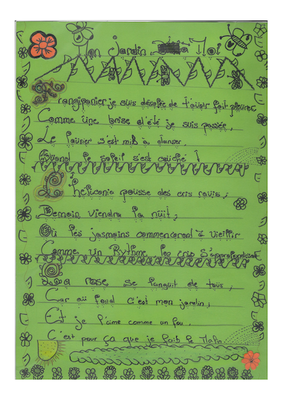 Mon Jardin à Moi
Frangipanier je suis désolée de t'avoir fait pleurer
Comme une brise d'été je suis passée,
Le faner s'est mis à danser
Quand le soleil s'est couché !
L'héliconia pousse des cris ravis,
Demain viendra la nuit,
Où les jasmins commencent à vieillir
Comme un Rythme
La rose se languit de tous,
Car au fond c'est mon jardin,
Est je l'aime comme un fou.
C'est pour ça que je